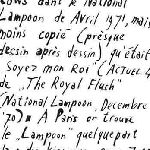 dans le National
Lampoon de Avril 1971, mais
moins copié (presque
dessin après dessin), qu'était
"Soyez mon Roi" (Actuel 4
de "The Royal Fluch"
(National Lampoon, Décembre
70)» A Paris on trouve
le "Lampoon" quelquepart